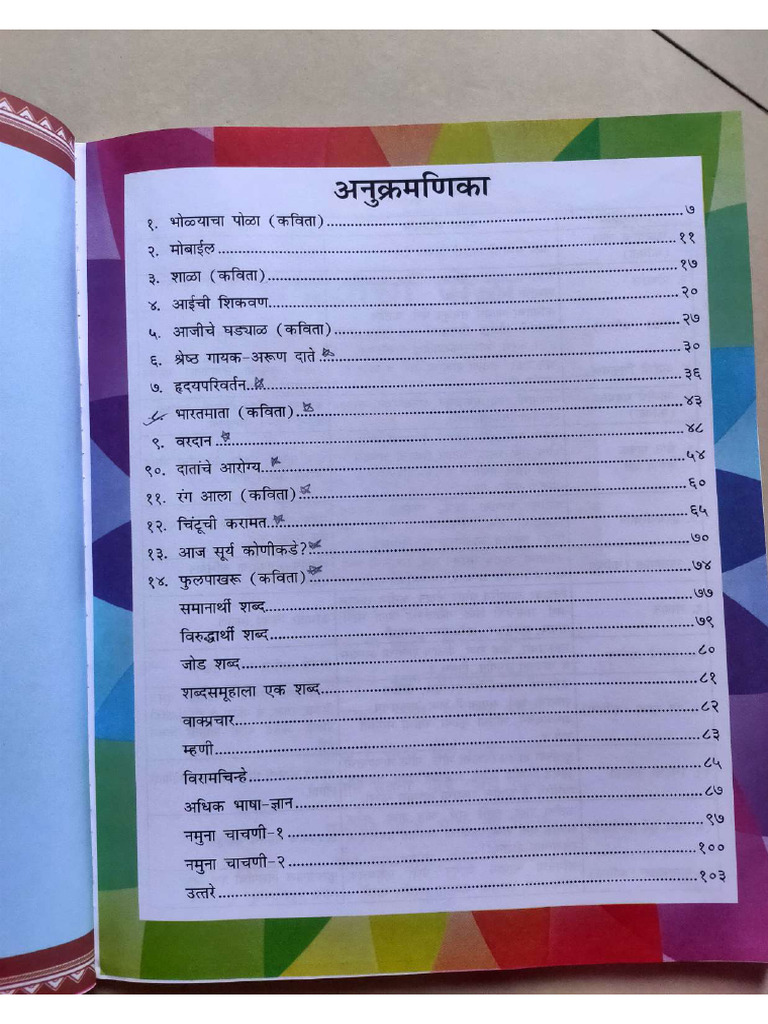 अनुक्रमणिका
१. भोळ्याचा पोळा (कविता)........७
२. मोबाईल........११
३. शाळा (कविता)........१७
४. आईची शिकवण........२०
५. आजीचे घड्याळ (कविता)........२७
६. श्रेष्ठ गायक-अरूण दाते........३०
७. हृदयपरिवर्तन........३६
८. भारतमाता (कविता)........४३
९. वरदान........४८
१०. दातांचे आरोग्य........५४
११. रंग आला (कविता)........६०
१२. चिंटूची करामत........६५
१३. आज सूर्य कोणीकडे?........७०
१४. फुलपाखरू (कविता)........७४
समानार्थी शब्द........७७
विरुद्धार्थी शब्द........७९
जोड शब्द........८०
शब्दसमूहाला एक शब्द........८१
वाक्प्रचार........८२
म्हणी........८३
विरामचिन्हे........८५
अधिक भाषा-ज्ञान........८७
नमुना चाचणी-१........९७
नमुना चाचणी-२........१००
उत्तरे........१०३